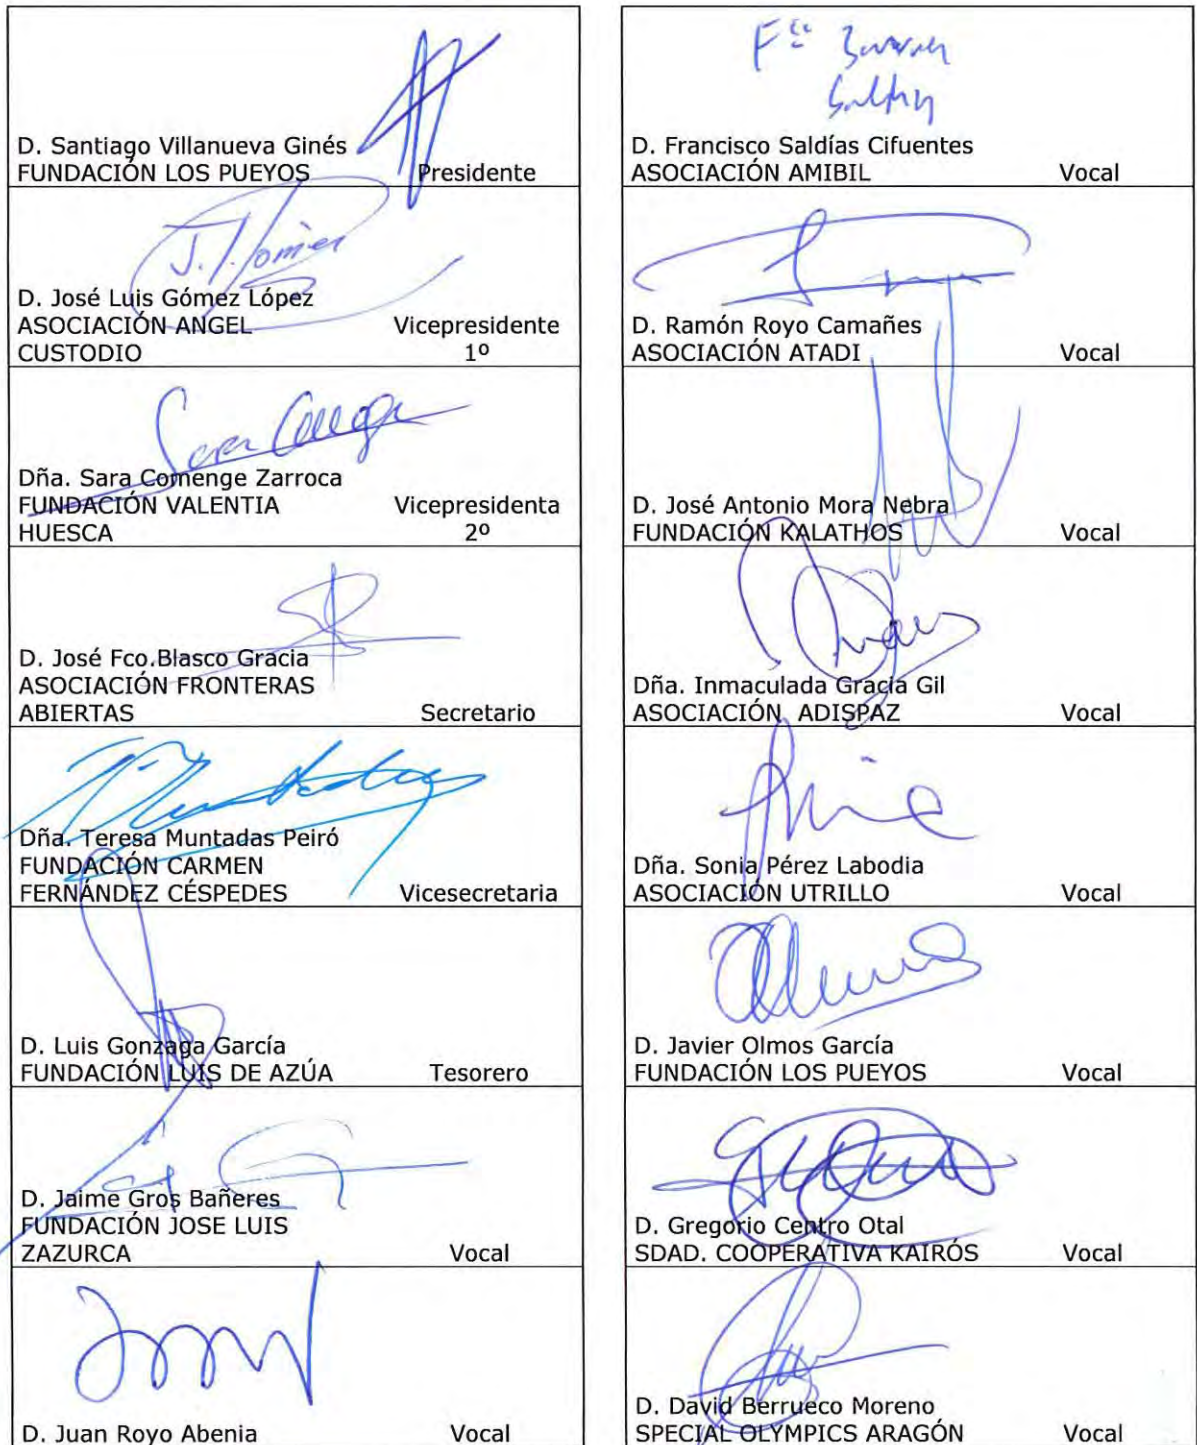 D. Santiago Villanueva Ginés
FUNDACIÓN LOS PUEYOS Presidente
D. José Luis Gómez López
ASOCIACIÓN ANGEL Vicepresidente
CUSTODIO 1º
Dña. Sara Comenge Zarroca
FUNDACIÓN VALENTIA Vicepresidenta
HUESCA 2º
D. José Fco.Blasco Gracia
ASOCIACIÓN FRONTERAS
ABIERTAS Secretario
Dña. Teresa Muntadas Peiró
FUNDACIÓN CARMEN
FERNÁNDEZ CÉSPEDES Vicesecretaria
D. Luis Gonzaga García
FUNDACIÓN LUIS DE AZÚA Tesorero
D. Jaime Gros Bañeres
FUNDACIÓN JOSE LUIS
ZAZURCA Vocal
D. Juan Royo Abenia Vocal
D. Francisco Saldías Cifuentes
ASOCIACIÓN AMIBIL Vocal
D. Ramón Royo Camañes
ASOCIACIÓN ATADI Vocal
D. José Antonio Mora Nebra
FUNDACIÓN KALATHOS Vocal
Dña. Inmaculada Gracia Gil
ASOCIACIÓN ADISPAZ Vocal
Dña. Sonia Pérez Labodia
ASOCIACIÓN UTRILLO Vocal
D. Javier Olmos García
FUNDACIÓN LOS PUEYOS Vocal
D. Gregorio Centro Otal
SDAD. COOPERATIVA KAIRÓS Vocal
D. David Berrueco Moreno
SPECIAL OLYMPICS ARAGÓN Vocal